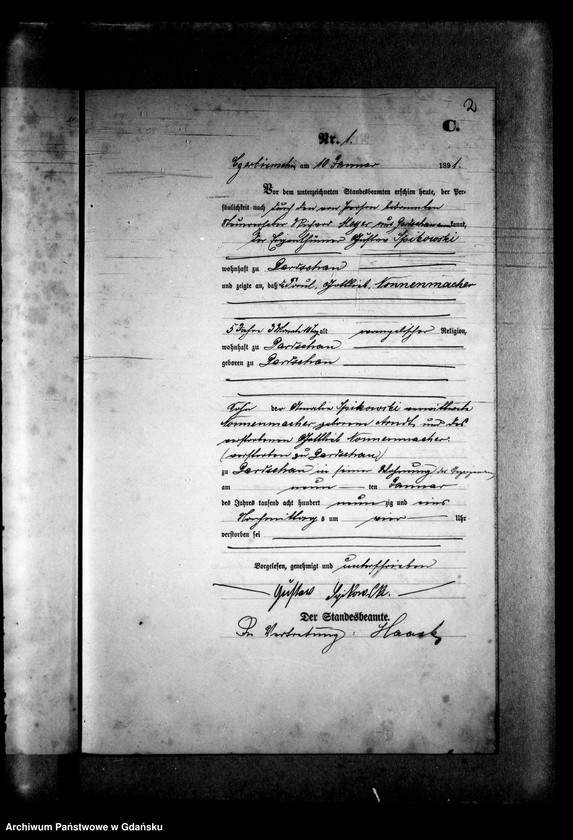 2
C.
Nr. 1.
am 10 Januar 1891.
Vor dem unterzeichneten Standesbeamten erschien heute, der Per-
sönlichkeit nach durch den von Person bekannten
Richard Meyer aus kannt,
der Eigenthümer Gustav Spikowski
wohnhaft zu Dartschau
und zeigte an, daß Paul Gottlieb Nonnenmacher
5 Jahre 3 Monate alt evangelischer Religion,
wohnhaft zu Dartschau
geboren zu Dartschau
Sohn der Amalie Spikowski verwittwete
Nonnenmacher geborene Arndt, und des
verstorbenen Gottlieb Nonnenmacher.
(verstorben zu Dartschau)
zu Dartschau in seiner Wohnung
am neun ten Januar
des Jahres tausend acht hundert neunzig und eins
Nachmittags um vier Uhr
verstorben sei
Vorgelesen, genehmigt und unterschrieben
Gustav Spikowski.
Der Standesbeamte.
In Vertretung: Haack
Archiwum Państwowe w Gdańsku